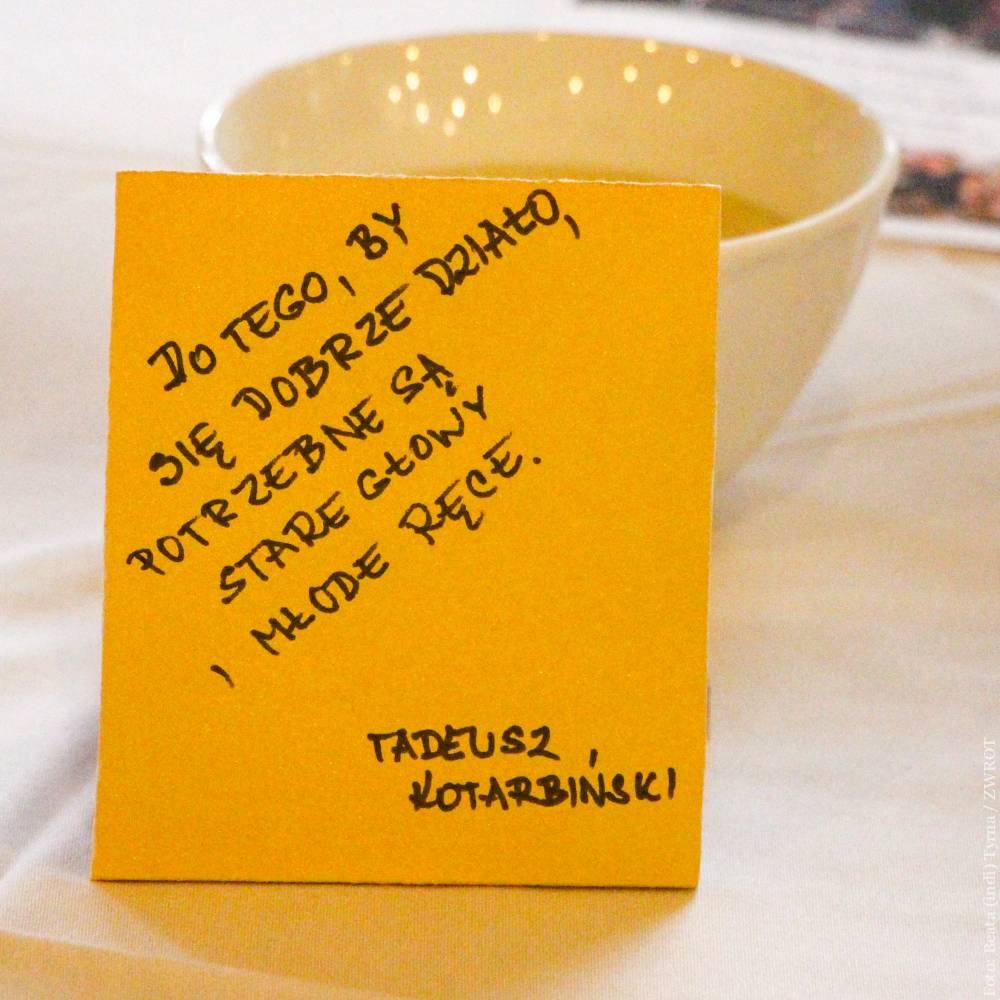 DO TEGO, BY
SIĘ DOBRZE DZIAŁO,
POTRZEBNE SĄ
STARE GŁOWY
I MŁODE RĘCE.
TADEUSZ
KOTARBIŃSKI
Foto: Beata (indi) Tyrna / ZWROT